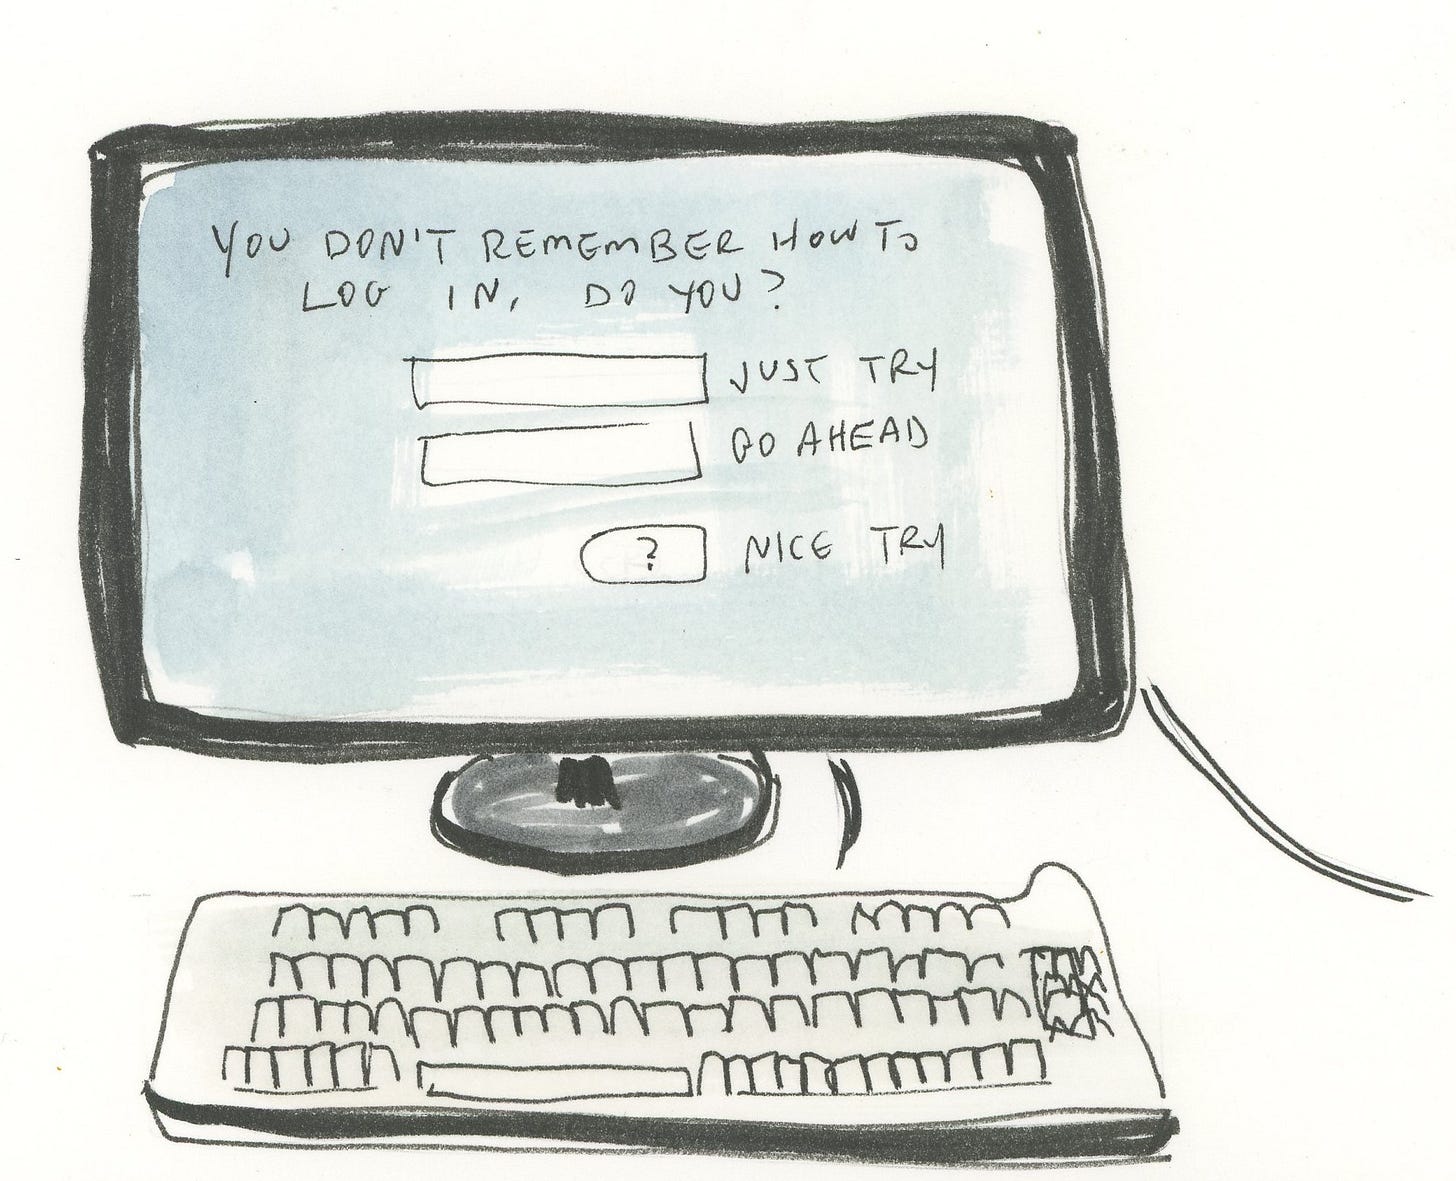 YOU DON'T REMEMBER HOW TO
LOG IN, DO YOU?
JUST TRY
GO AHEAD
? NICE TRY